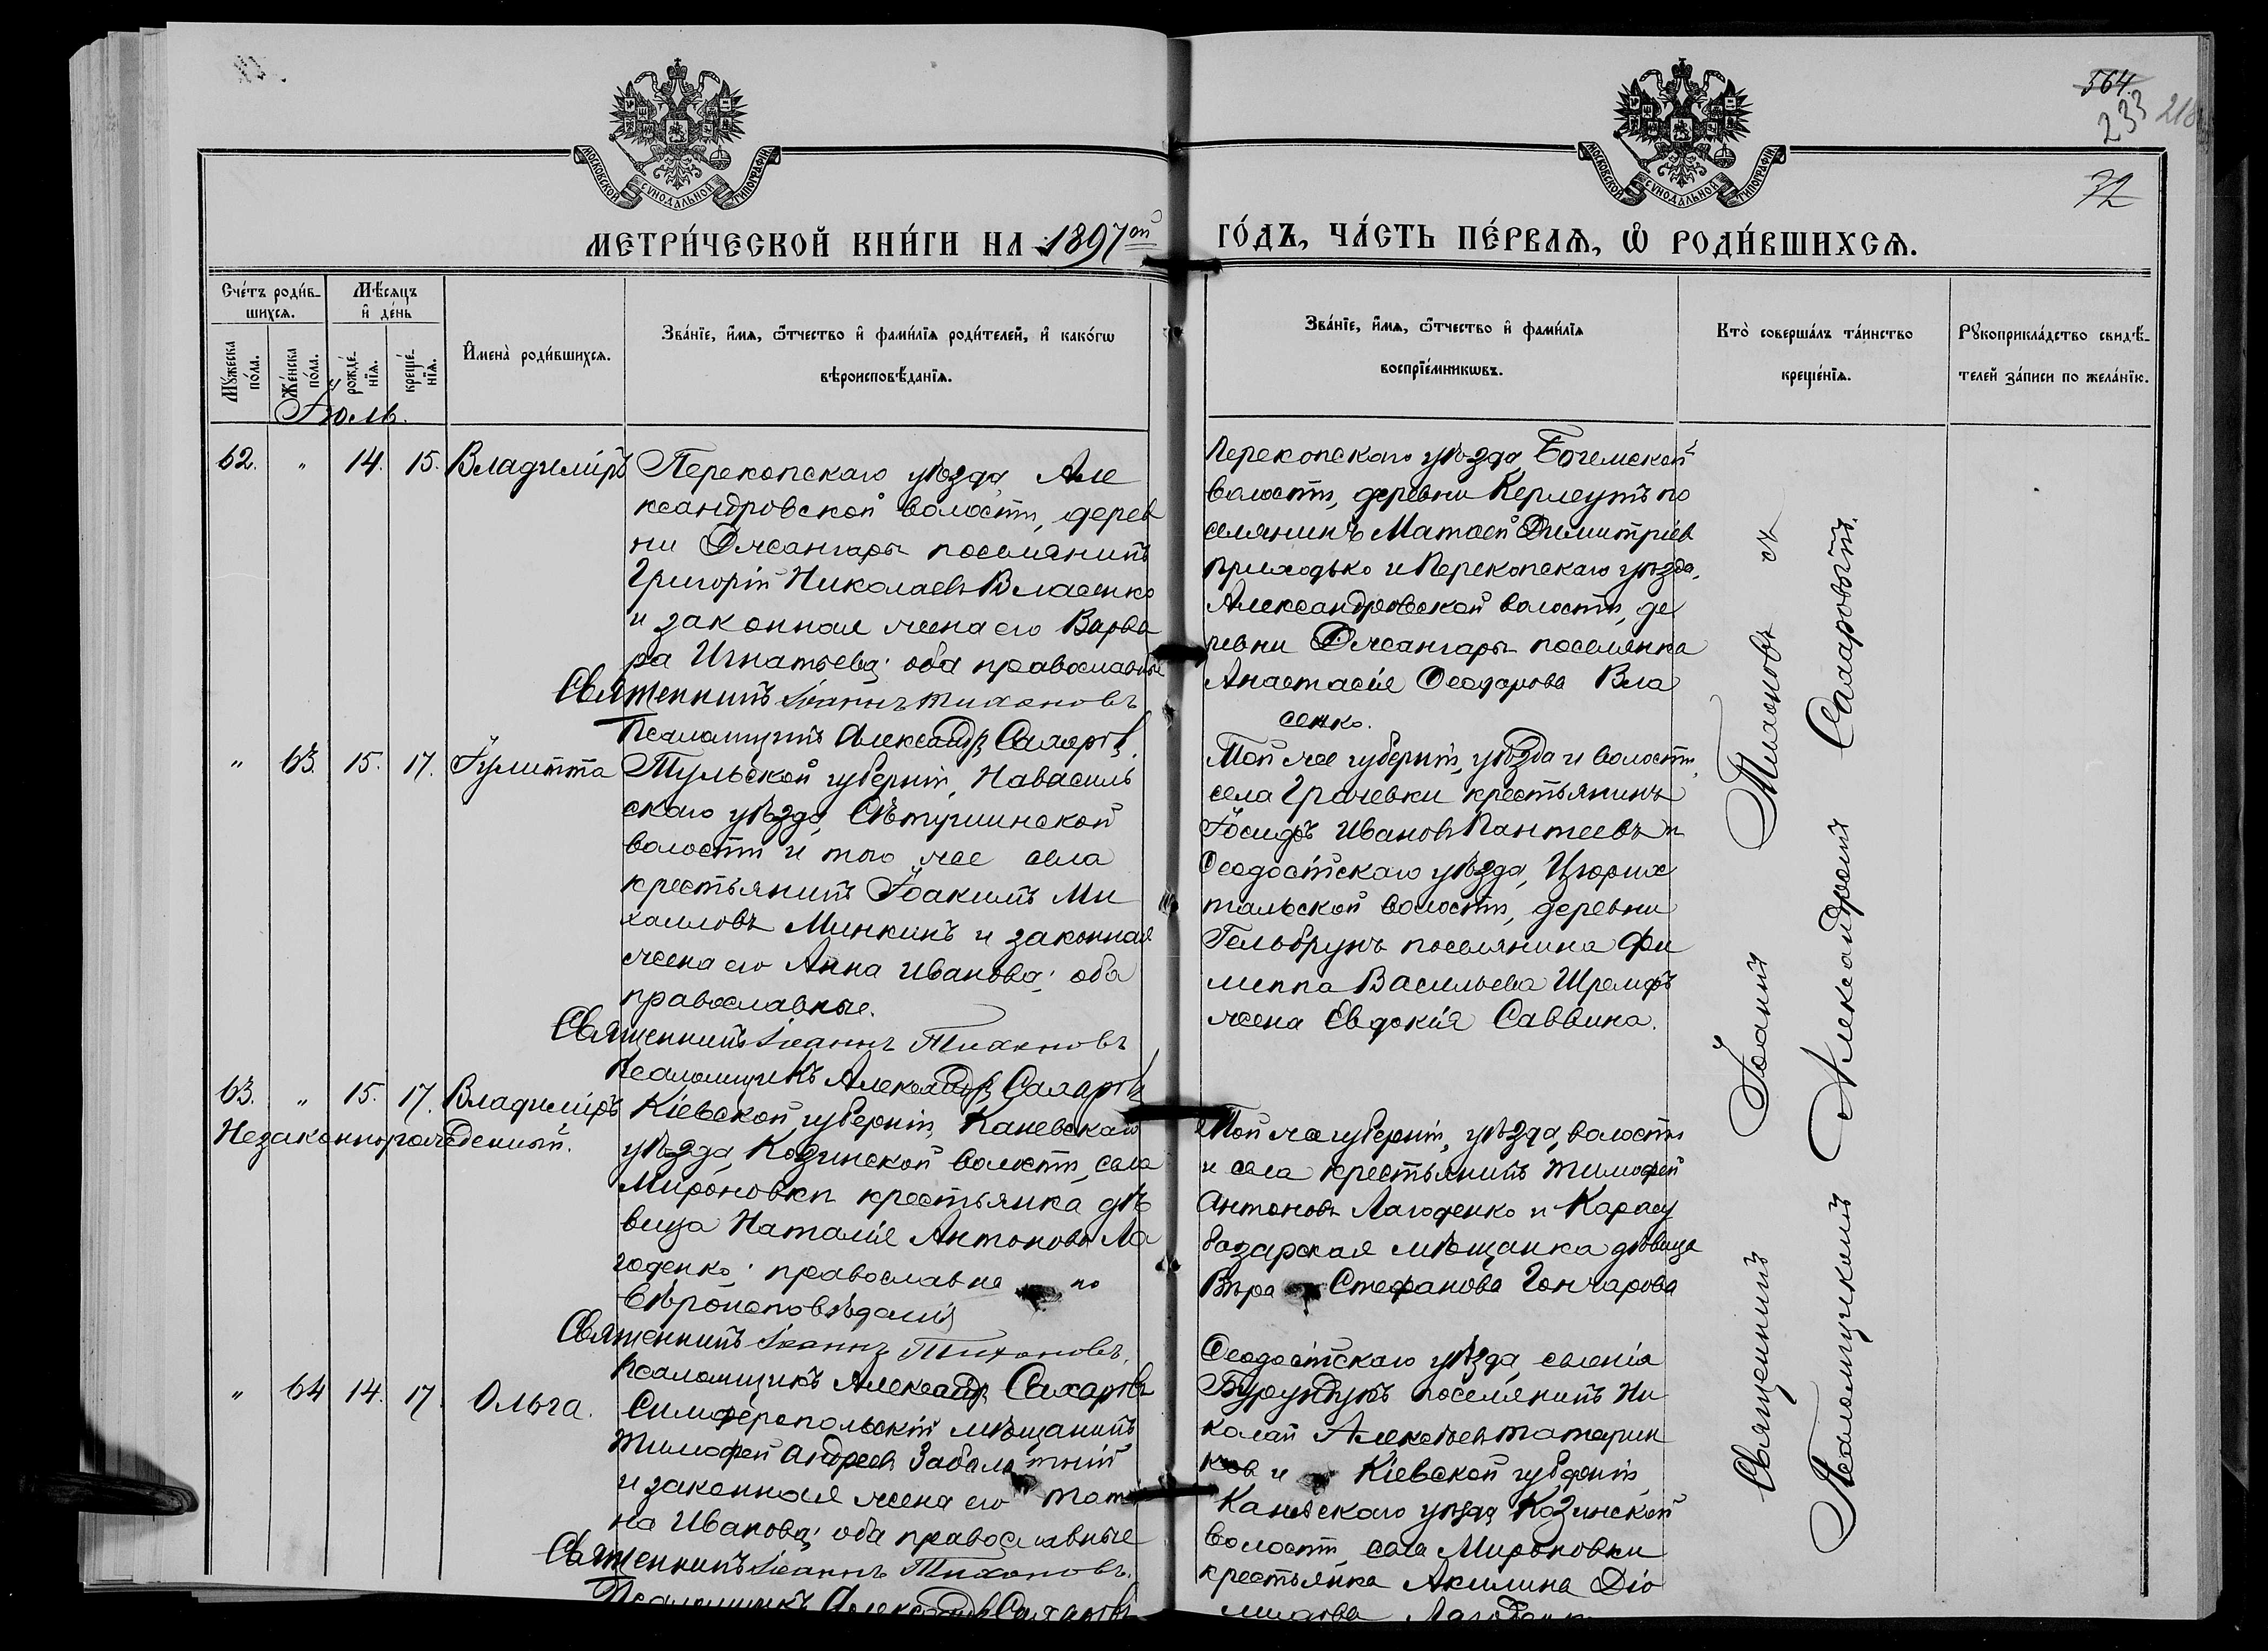 564.
233 218
72
МОСКОВСКОЙ СѴНОДАЛЬНОЙ ТИПОГРАФІИ
МОСКОВСКОЙ СѴНОДАЛЬНОЙ ТИПОГРАФІИ
МЕТРИ́ЧЕСКОЙ КНИ́ГИ НА 1897ой
ГО́ДЪ, ЧА́СТЬ ПЕ́РВАѦ, Ѡ РОДИ́ВШИХСѦ.
Сче́тъ роди́в-
шихсѧ.
Мѣ́сяцъ
и҆ де́нь
Мꙋ́жеска
по́ла.
Же́нска
по́ла.
рожде́-
нїѧ.
креще́-
нїѧ.
И҆мена̀ роди́вшихсѧ.
Зва́нїе, и҆́мѧ, ѻ҆́тчество и҆ фами́лїѧ роди́телей, и҆ како́гѡ
вѣроисповѣ́данїѧ.
Зва́нїе, и҆́мѧ, ѻ҆́тчество и҆ фами́лїѧ
воспрїе́мникѡвъ.
Кто̀ соверша́лъ та́инство
креще́нїѧ.
Рꙋкоприкла́дство свидѣ́-
телей за́писи по жела́нїю.
Іюль.
62. " 14. 15. Владиміръ
Перекопскаго уѣзда, Але
ксандровской волости, дерев
ни Джсангары поселянинъ
Григорій Николаевъ Власенко
и законная жена его Варва
ра Игнатьева; оба православные
Священникъ Іоаннъ Тихоновъ
Псаломщикъ Александръ Сахаровъ.
Перекопскаго уѣзда, Богемской
волости, деревни Керлеутъ по
селянинъ Матѳей Димитріев
Приходько и Перекопскаго уѣзда,
Александровской волости, де
ревни Джсангары поселянка
Анастасія Ѳеодорова Вла
сенко.
" 63. 15. 17. Іулитта
Тульской губерніи, Новосиль
скаго уѣзда,
волости и того же села
крестьянинъ Іоакимъ Ми
хаиловъ Минкинъ и законная
жена его Анна Иванова; оба
православные.
Священникъ Іоаннъ Тихоновъ
Псаломщикъ Александръ Сахаровъ
Той же губерніи, уѣзда и волости,
села Грачевки крестьянинъ
Іосифъ Ивановъ Пантеевъ и
Ѳеодосійскаго уѣзда, Цюрих
тальской волости, деревни
Гельбрунъ поселянина Фи
липпа Васильева
жена Евдокія Саввина.
63. " 15. 17. Владиміръ
Незаконнорожденный.
Кіевской губерніи, Каневскаго
уѣзда, Козинской волости, села
Мироновки крестьянка дѣ
вица Наталія Антонова Ла
годенко; православна по
вѣроисповѣданія
Священникъ Іоаннъ Тихоновъ.
Псаломщикъ Александръ Сахаровъ
Той же губерніи, уѣзда, волости
и села крестьянинъ Тимоѳей
Антоновъ Лагоденко и Карасу
базарская мѣщанка дѣвица
Вѣра Стефанова Гончарова
" 64 14. 17. Ольга.
Симферопольскій мѣщанинъ
Тимофей Андреевъ Заболотній
и законная жена его
на Иванова; оба православные
Священникъ Іоаннъ Тихоновъ.
Псаломщикъ Александръ Сахаровъ
Ѳеодосійскаго уѣзда, селенія
Бурундукъ поселянинъ Ни
колай Алексѣевъ
и Кіевской губерніи,
Каневскаго уѣзда Козинской
волости, села Мироновки
крестьянка Акилина Діо
мидова
Священникъ Іоаннъ Тихоновъ съ
Псаломщикомъ Александромъ Сахаровымъ.